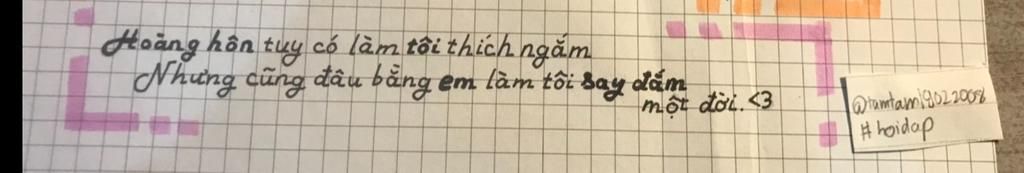 Hoàng hôn tuy có làm tôi thích ngắm
Nhưng cũng đâu bằng em làm tôi say đắm
một đời. <3
@tamtam19022008
#hoidap